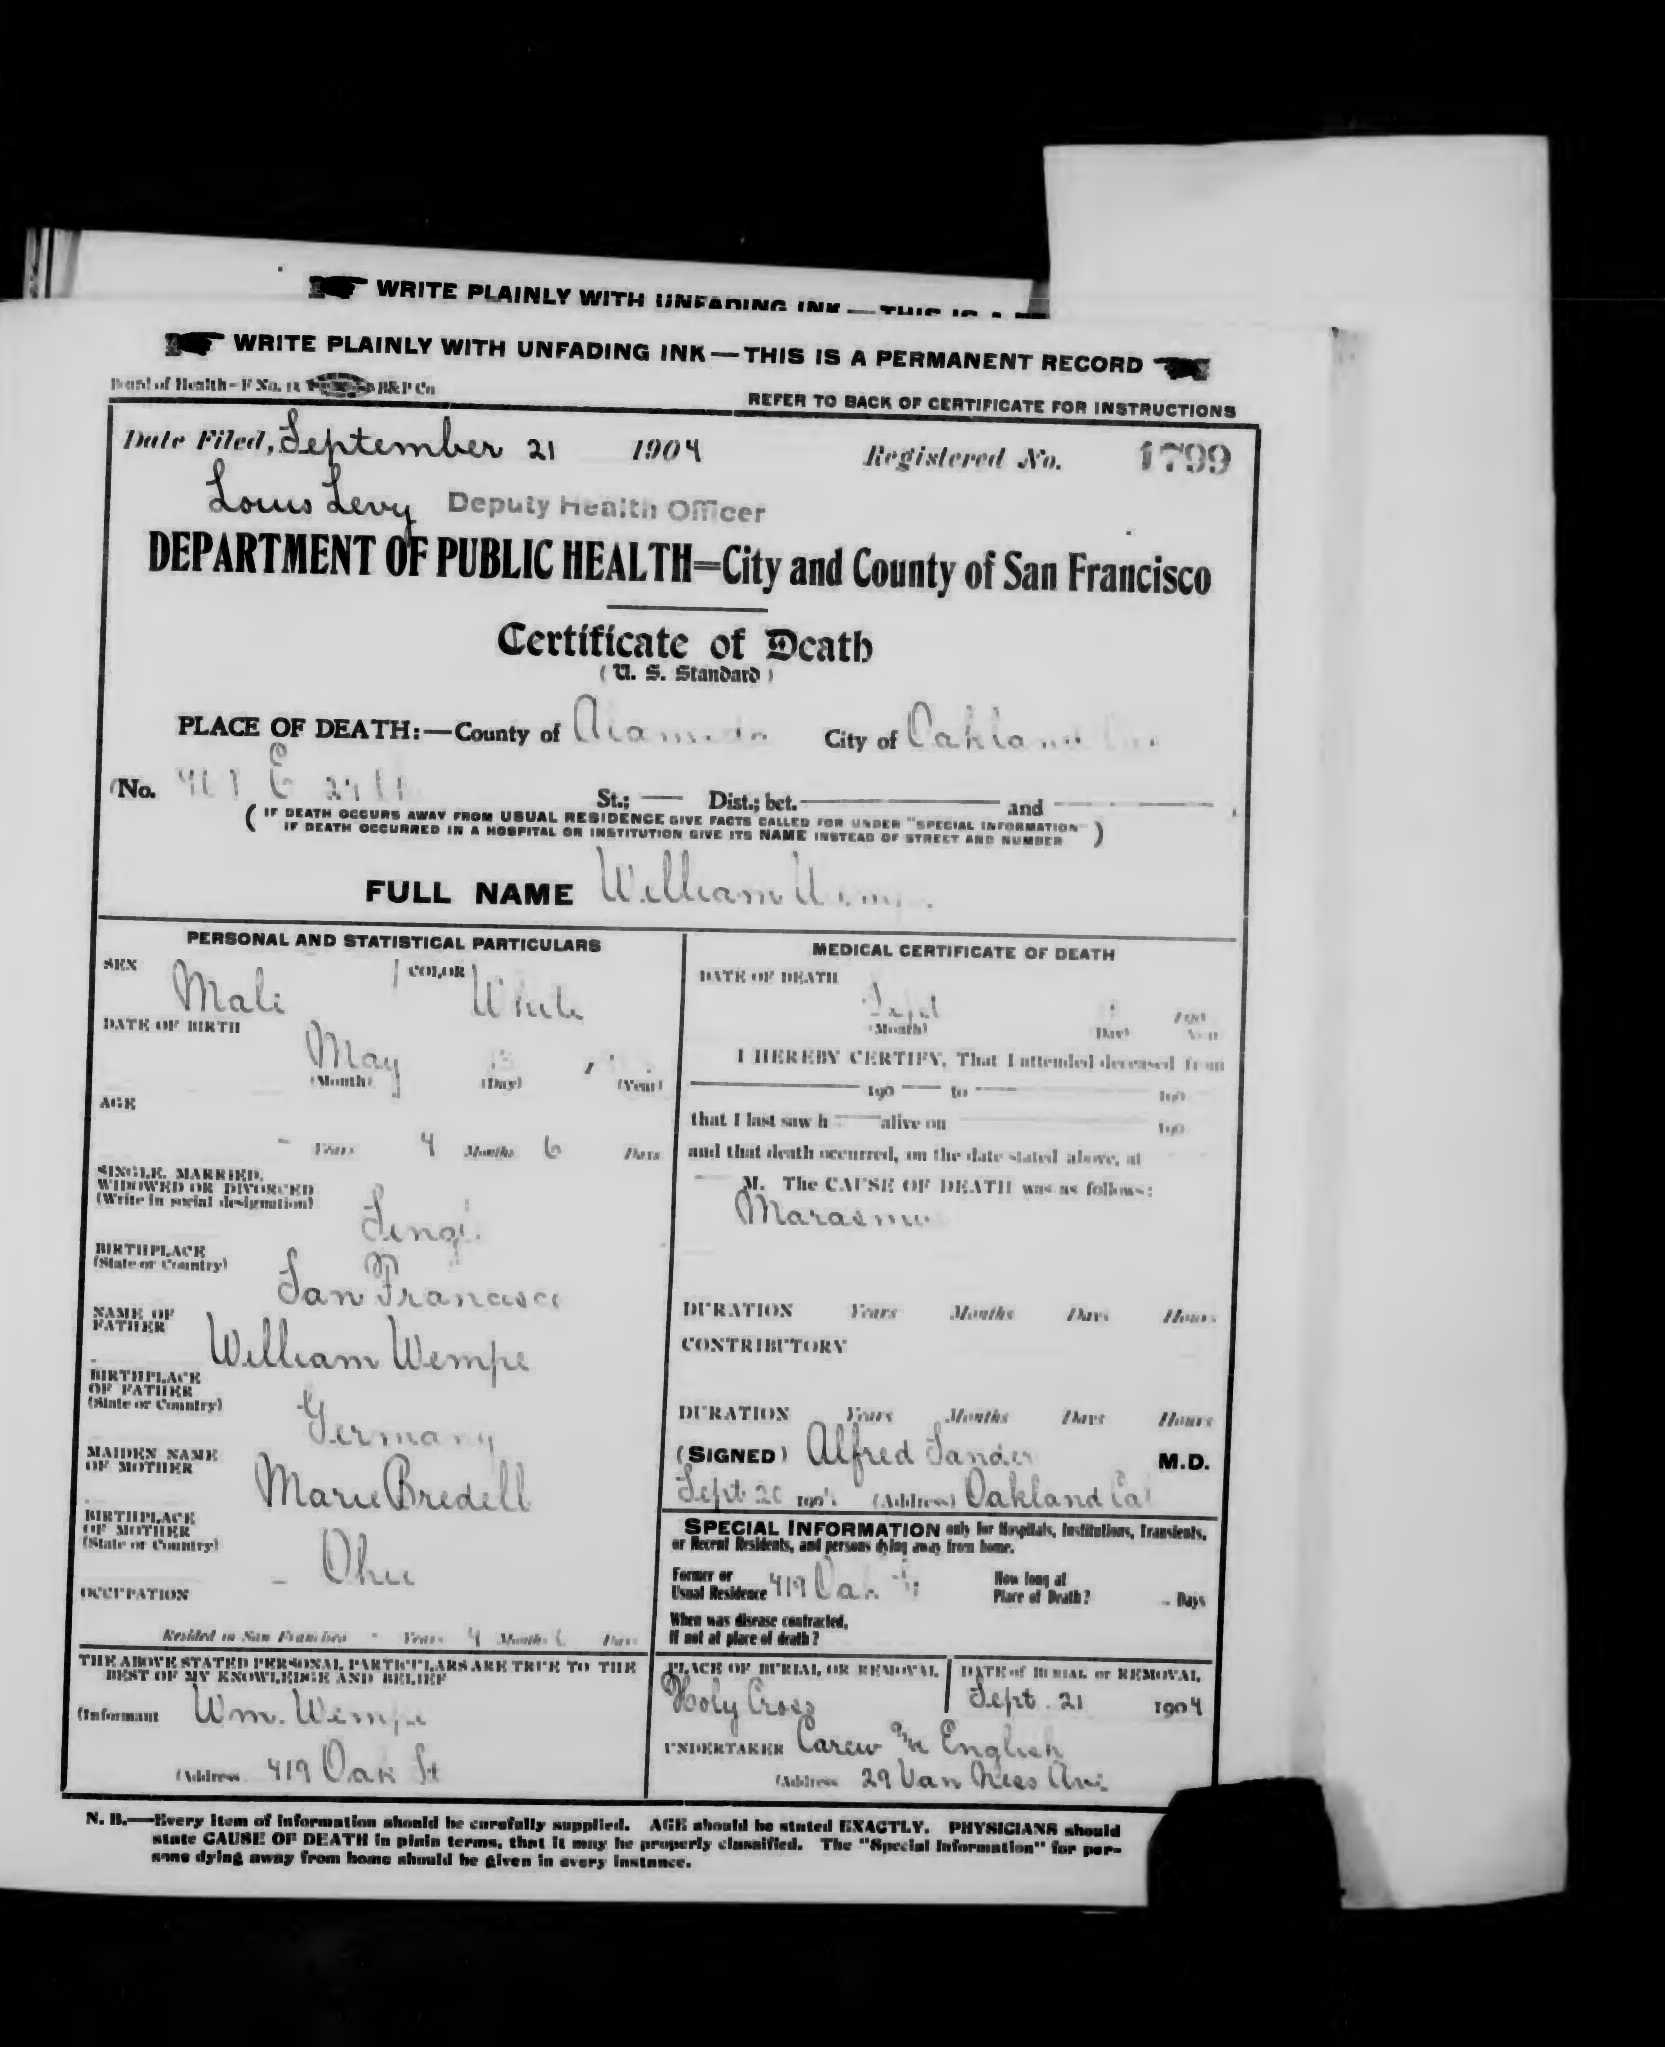 WRITE PLAINLY WITH UNFADING INK — THIS IS A
WRITE PLAINLY WITH UNFADING INK — THIS IS A PERMANENT RECORD
Board of Health—F No. B&P Co
REFER TO BACK OF CERTIFICATE FOR INSTRUCTIONS
Date Filed, September 21 1904 Registered No. 1799
Louis Levy Deputy Health Officer
DEPARTMENT OF PUBLIC HEALTH=City and County of San Francisco
Certificate of Death
(U. S. Standard)
PLACE OF DEATH:—County of Alameda City of Oakland
(No. E St.; — Dist.; bet. — and —
(IF DEATH OCCURS AWAY FROM USUAL RESIDENCE GIVE FACTS CALLED FOR UNDER "SPECIAL INFORMATION"
IF DEATH OCCURRED IN A HOSPITAL OR INSTITUTION GIVE ITS NAME INSTEAD OF STREET AND NUMBER)
FULL NAME William Wempe
PERSONAL AND STATISTICAL PARTICULARS
SEX Male COLOR White
DATE OF BIRTH
May
(Month) (Day) (Year)
AGE
- Years 4 Months 6 Days
SINGLE, MARRIED,
WIDOWED OR DIVORCED
(Write in social designation) Single
BIRTHPLACE
(State or Country) San Francisco
NAME OF
FATHER William Wempe
BIRTHPLACE
OF FATHER
(State or Country) Germany
MAIDEN NAME
OF MOTHER Marie Bredell
BIRTHPLACE
OF MOTHER
(State or Country) Ohio
OCCUPATION -
Resided in San Francisco - Years 4 Months 6 Days
THE ABOVE STATED PERSONAL PARTICULARS ARE TRUE TO THE
BEST OF MY KNOWLEDGE AND BELIEF
(Informant Wm. Wempe
(Address 419 Oak St
MEDICAL CERTIFICATE OF DEATH
DATE OF DEATH
Sept 190
(Month) (Day) (Year)
I HEREBY CERTIFY, That I attended deceased from
— 190 — to — 190
that I last saw h — alive on — 190
and that death occurred, on the date stated above, at
— M. The CAUSE OF DEATH was as follows:
Marasmus
DURATION Years Months Days Hours
CONTRIBUTORY
DURATION Years Months Days Hours
(SIGNED) Alfred Sander M.D.
Sept 20 1904 (Address) Oakland Cal
SPECIAL INFORMATION only for Hospitals, Institutions, Transients,
or Recent Residents, and persons dying away from home.
Former or
Usual Residence 419 Oak St
How long at
Place of Death? - Days
When was disease contracted,
If not at place of death?
PLACE OF BURIAL OR REMOVAL
Holy Cross
DATE of BURIAL or REMOVAL
Sept. 21 1904
UNDERTAKER Carew & English
(Address 29 Van Ness Ave
N. B.—Every item of information should be carefully supplied. AGE should be stated EXACTLY. PHYSICIANS should
state CAUSE OF DEATH in plain terms, that it may be properly classified. The "Special Information" for per-
sons dying away from home should be given in every instance.